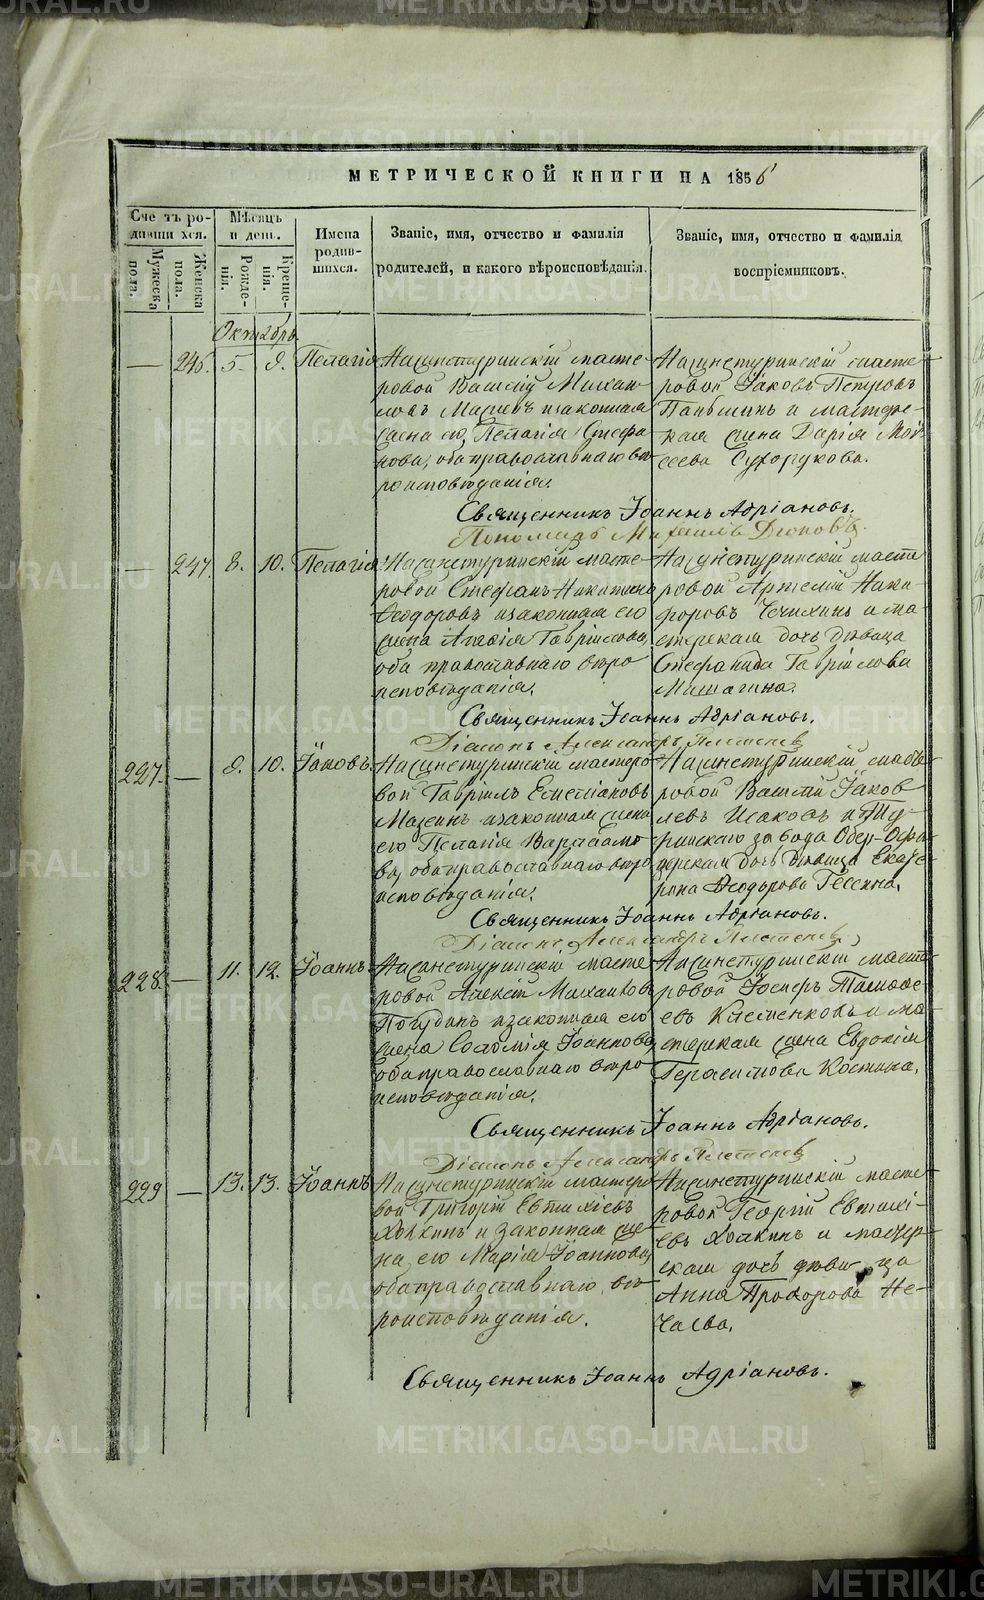 МЕТРИЧЕСКОЙ КНИГИ НА 1856
Счетъ родившихся.
Мужеска пола.
Женска пола.
Мѣсяцъ и день.
Рожденія.
Крещенія.
Имена родившихся.
Званіе, имя, отчество и фамилія
родителей, и какого вѣроисповѣданія.
Званіе, имя, отчество и фамилія
воспріемниковъ.
Октябрь
— 246. 5. 8. Пелагія
Нижнетуринскій масте-
ровой Василій Михаи-
ловъ и законная
жена его Пелагія Стефа-
нова, оба православнаго вѣ-
роисповѣданія.
Нижнетуринскій масте-
ровой Іаковъ Петровъ
и мастерс-
кая жена Дарія Мои-
сеева Сухорукова.
Священникъ Іоаннъ Адріановъ.
Пономарь Михаилъ
— 247. 8. 10. Пелагія
Нижнетуринскій масте-
ровой Стефанъ Никитинъ
Ѳеодоровъ и законная его
жена Гавріилова,
оба православнаго вѣро
исповѣданія.
Нижнетуринскій масте
ровой Артемій Ники-
форовъ и ма-
стерская дочь дѣвица
Стефанида Гавріилова
Мишагина.
Священникъ Іоаннъ Адріановъ.
Діаконъ Александръ
227. — 8. 10. Іаковъ.
Нижнетуринскій мастеро
вой Гавріилъ Емеліановъ
Мазеинъ и законная жена
его Пелагія Варлаамо
ва, оба православнаго вѣро
исповѣданія.
Нижнетуринскій масте
ровой Василій Іаков
левъ Исаковъ и Ту-
ринскаго завода Обер-Офи-
церская дочь дѣвица Екате
рина Ѳеодорова Гессина.
Священникъ Іоаннъ Адріановъ.
Діаконъ Александръ
228. — 11. 12. Іоаннъ
Нижнетуринскій масте
ровой Алексій Михаиловъ
Погудинъ и законная его
жена Соломія Іоаннова,
оба православнаго вѣро
исповѣданія.
Нижнетуринскій масте
ровой Іосифъ Тимофе-
евъ Клеменковъ и ма-
стерская жена Евдокія
Герасимова Костина.
Священникъ Іоаннъ Адріановъ.
Діаконъ Александръ
229 — 13. 13. Іоаннъ
Нижнетуринскій мастеро
вой Григорій Евтихіевъ
Холкинъ и законная же
на его Марія Іоаннова,
оба православнаго вѣ
роисповѣданія.
Нижнетуринскій масте
ровой Георгій Евтихі-
евъ Холкинъ и мастер-
ская дочь дѣвица
Анна Прохорова Не-
чаева.
Священникъ Іоаннъ Адріановъ.
METRIKI.GASO-URAL.RU